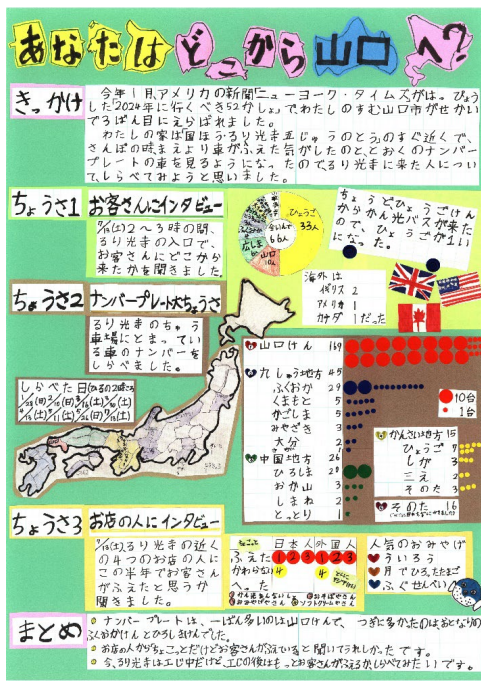 あなたはどこから山口へ?
きっかけ
今年1月、アメリカの新聞「ニューヨーク・タイムズ」がは。ぴょう
した「2024年に行くべき52かしょ」でわたしのすむ山口市がせかい
で3ばん目にえらばれました。
わたしの家は国ほう・るり光寺五じゅうのとうのすぐ近くで、
さんぽの時まえより車がふえた気がしたのと、とおくのナンバー
プレートの車を見るようになったのでるり光寺に来た人につい
て、しらべてみようと思いました。
ちょうさ1
お客さんにインタビュー
2〜3時の間、
るり光寺の入口で、
お客さんにどこから
来たかを聞きました。
ひょうご
33人
ぜんいんで
66人
山口
10人
広しま
ちょうどひょうごけん
からかん光バスが来た
ので、ひょうごが1い
になった。
海外は
イギリス 2
アメリカ 1
カナダ 1だった
ちょうさ2
ナンバープレート大ちょうさ
るり光寺のちゅう
車場にとまってい
る車のナンバーを
しらべました。
しらべた日(ひるの2時ごろ)
山口けん 169
九しゅう地方 45
ふくおか 29
くまもと 5
かごしま 5
みやざき 3
大分 2
中国地方 26
ひろしま 20
おか山
しまね 2
とっとり 1
10台
1台
かんさい地方 15
ひょうご 7
しが 3
三え 2
そのた 3
そのた 16
ちょうさ3
お店の人にインタビュー
7/13(土)、るり光寺の近く
の4つのお店の人に
この半年でお客さん
がふえたと思うか
聞きました。
日本人 外国人
ふえた 1 2 3 1 2 3
かわらない 4 4
へった
おそばやさん
おみやげやさん
ソフトクリームやさん
人気のおみやげ
ういろう
月でひろったたまご
ふぐせんべい
まとめ
ナンバープレートは、一ばん多いのは山口けんで、つぎに多かったのはおとなりの
ふくおかけんとひろしまけんでした。
お店の人からちょこっとだけどお客さんがふえていると聞いてうれしかったです。
今、るり光寺は工じ中だけど、工じの後はもっとお客さんがふえるか、しらべてみたいです。